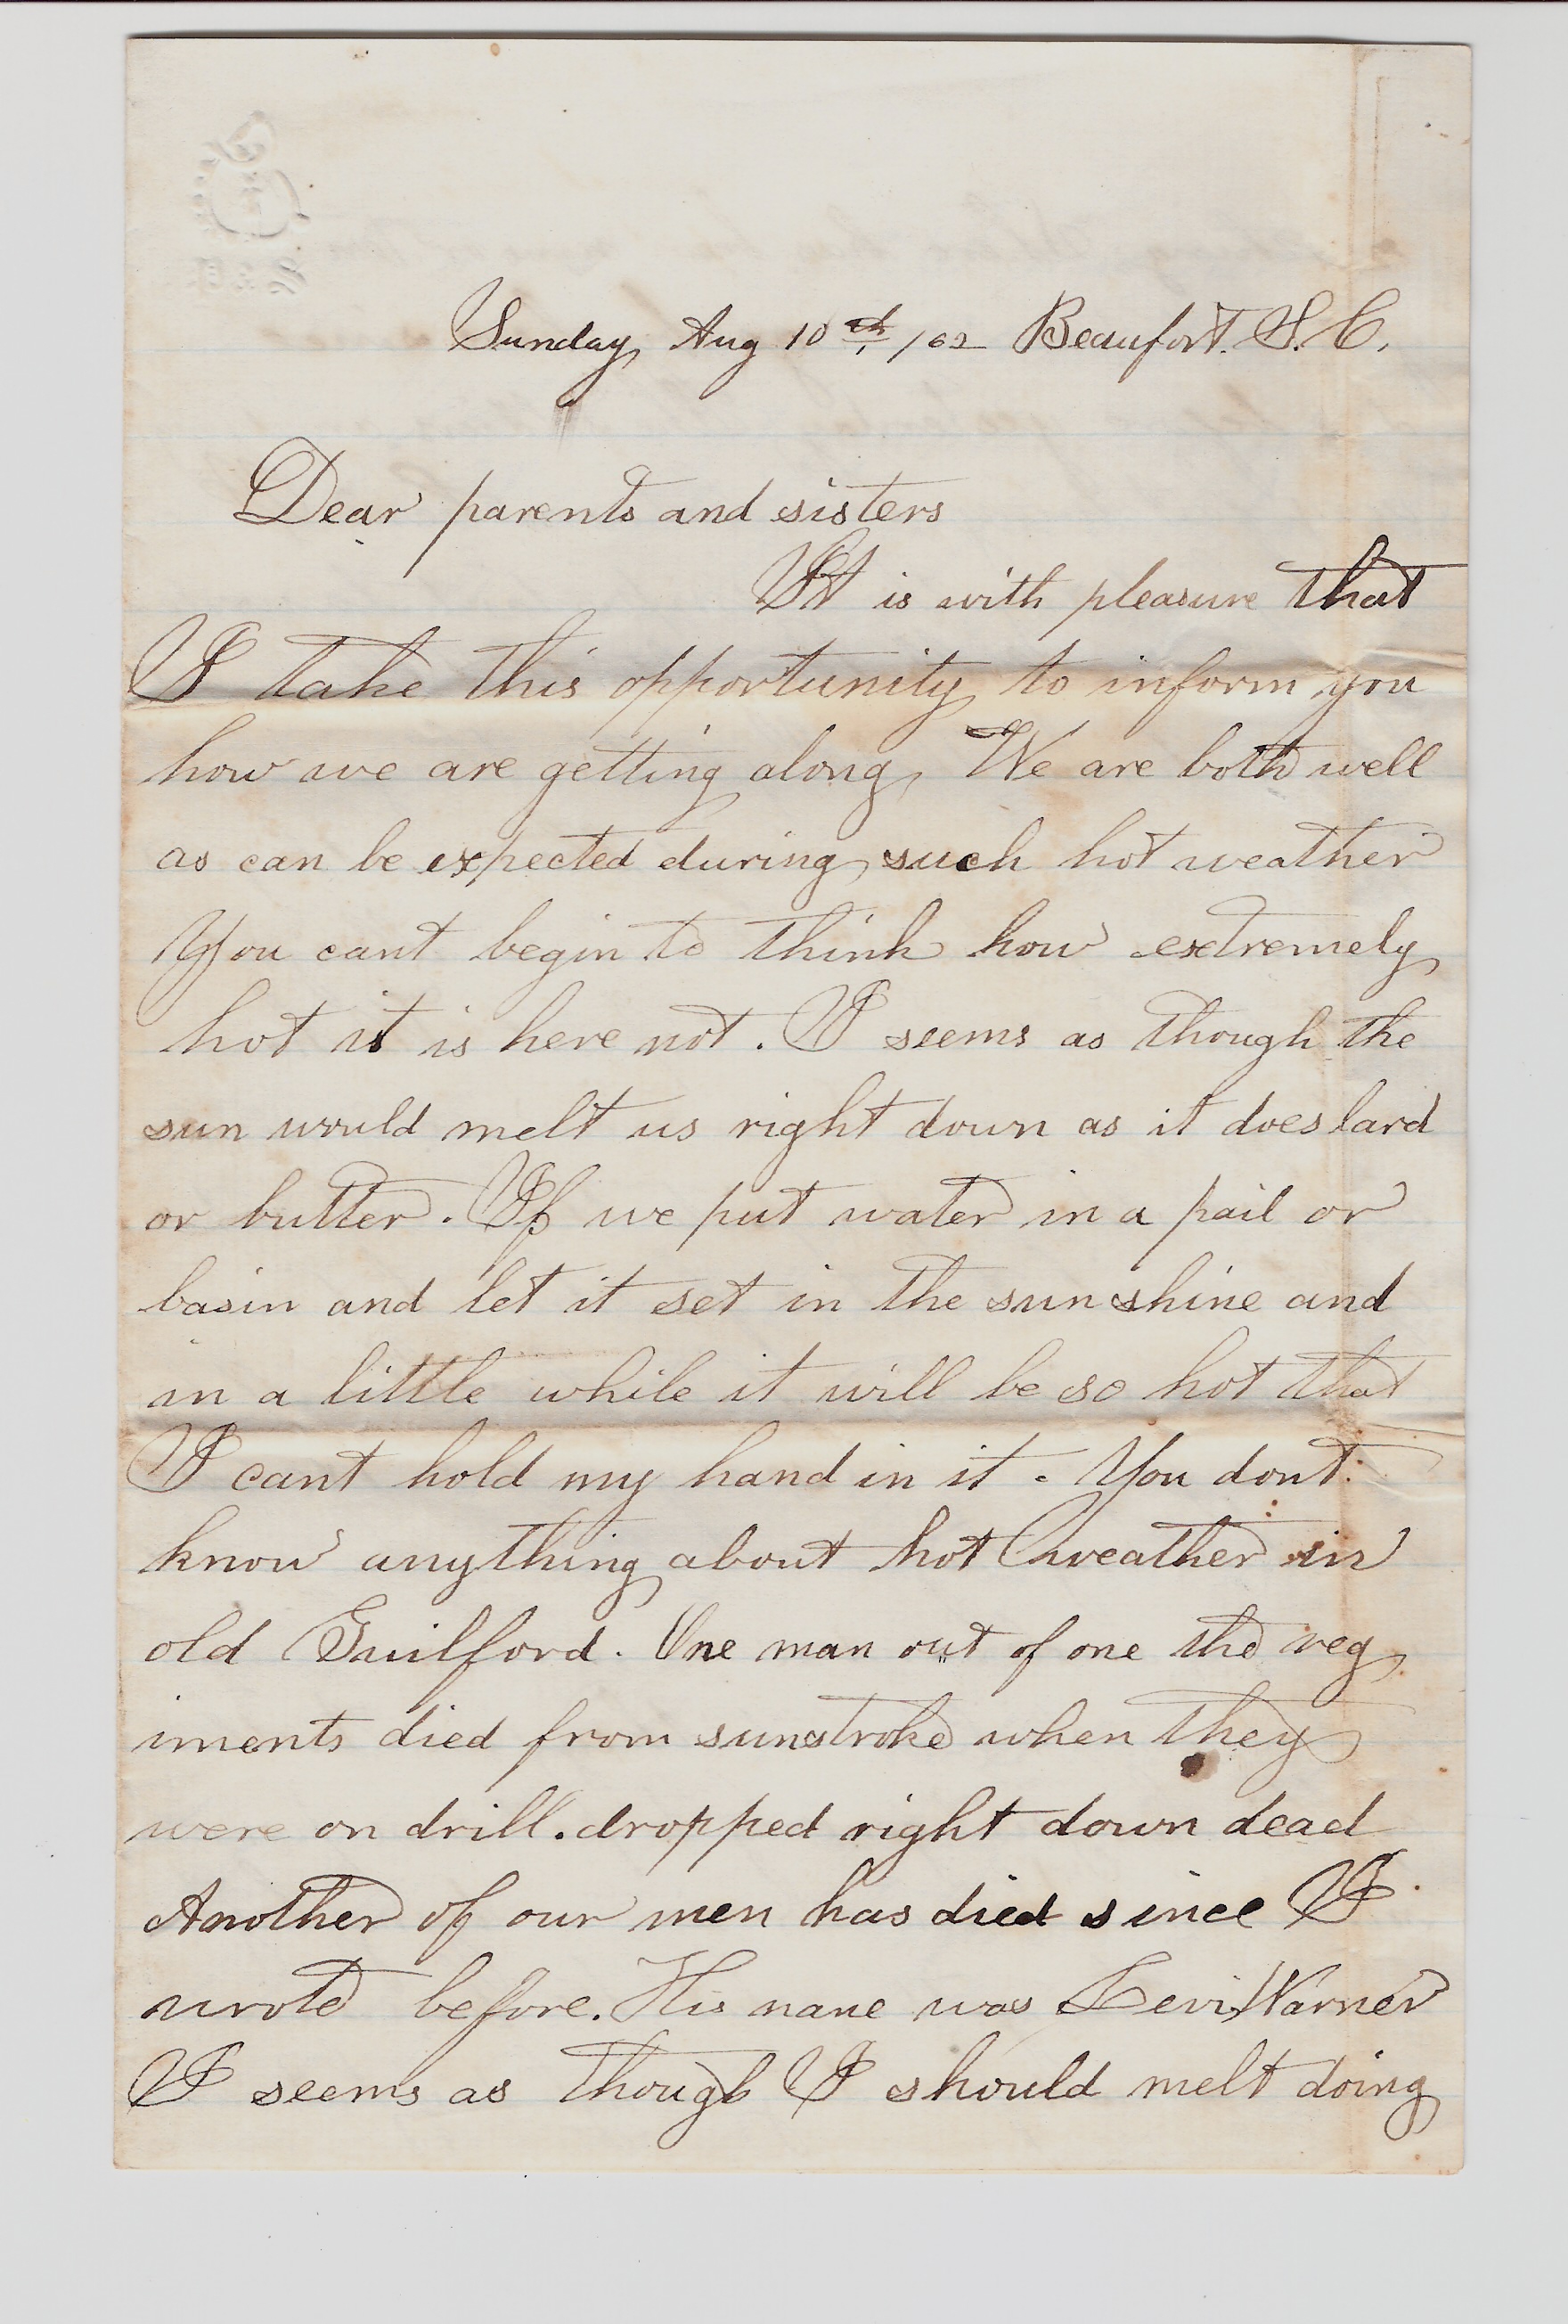 Sunday, Aug 10th, /62 Beaufort. S. C.
Dear parents and sisters
It is with pleasure that
I take this opportunity to inform you
how we are getting along, We are both well
as can be expected during such hot weather
You cant begin to think how extremely
hot it is here not. I seems as though the
sun would melt us right down as it does lard
or butter. If we put water in a pail or
basin and let it set in the sunshine and
in a little while it will be so hot that
I cant hold my hand in it. You dont
know anything about hot weather in
old Guilford. One man out of one the reg
iments died from sunstroke when they
were on drill. dropped right down dead
Another of our men has died since I
wrote before. His nane was Levi Warner
I seems as though I should melt doing